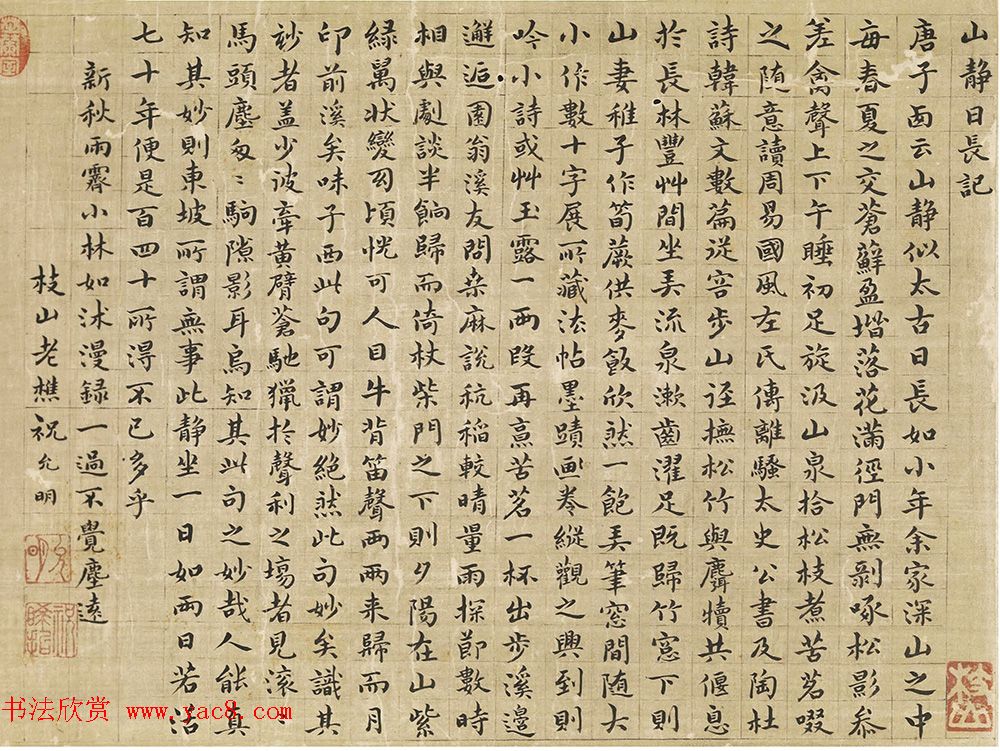 山静日長記
唐子西云山静似太古日長如小年余家深山之中
每春夏之交蒼蘚盈堦落花滿徑門無剥啄松影叅
差禽聲上下午睡初足旋汲山泉拾松枝煮苦茗啜
之随意讀周易國風左氏傳離騷太史公書及陶杜
詩韓蘇文數篇從容步山逕撫松竹與麛犢共偃息
於長林豐艸間坐弄流泉漱齒濯足既歸竹窻下則
山妻稚子作筍蕨供麥飯欣然一飽弄筆窓間随大
小作數十字展所藏法帖墨蹟画卷縱觀之興到則
吟小詩或艸玉露一兩段再烹苦茗一杯出步溪邊
邂逅園翁溪友問桒麻説秔稻較晴量雨探節數時
相與劇談半餉歸而倚杖柴門之下則夕陽在山紫
緑萬状變幻頃恍可人目牛背笛聲兩兩来歸而月
印前溪矣味子西此句可謂妙絶然此句妙矣識其
妙者盖少彼牽黄臂蒼馳獵於聲利之塲者見滚滚
馬頭塵匆匆駒隙影耳烏知其此句之妙哉人能真
知其妙則東坡所謂無事此静坐一日如兩日若活
七十年便是百四十所淂不已多乎
新秋雨霽小林如沐漫録一過不覺塵遠
枝山老樵祝允明
书法欣赏 www.yac8.com